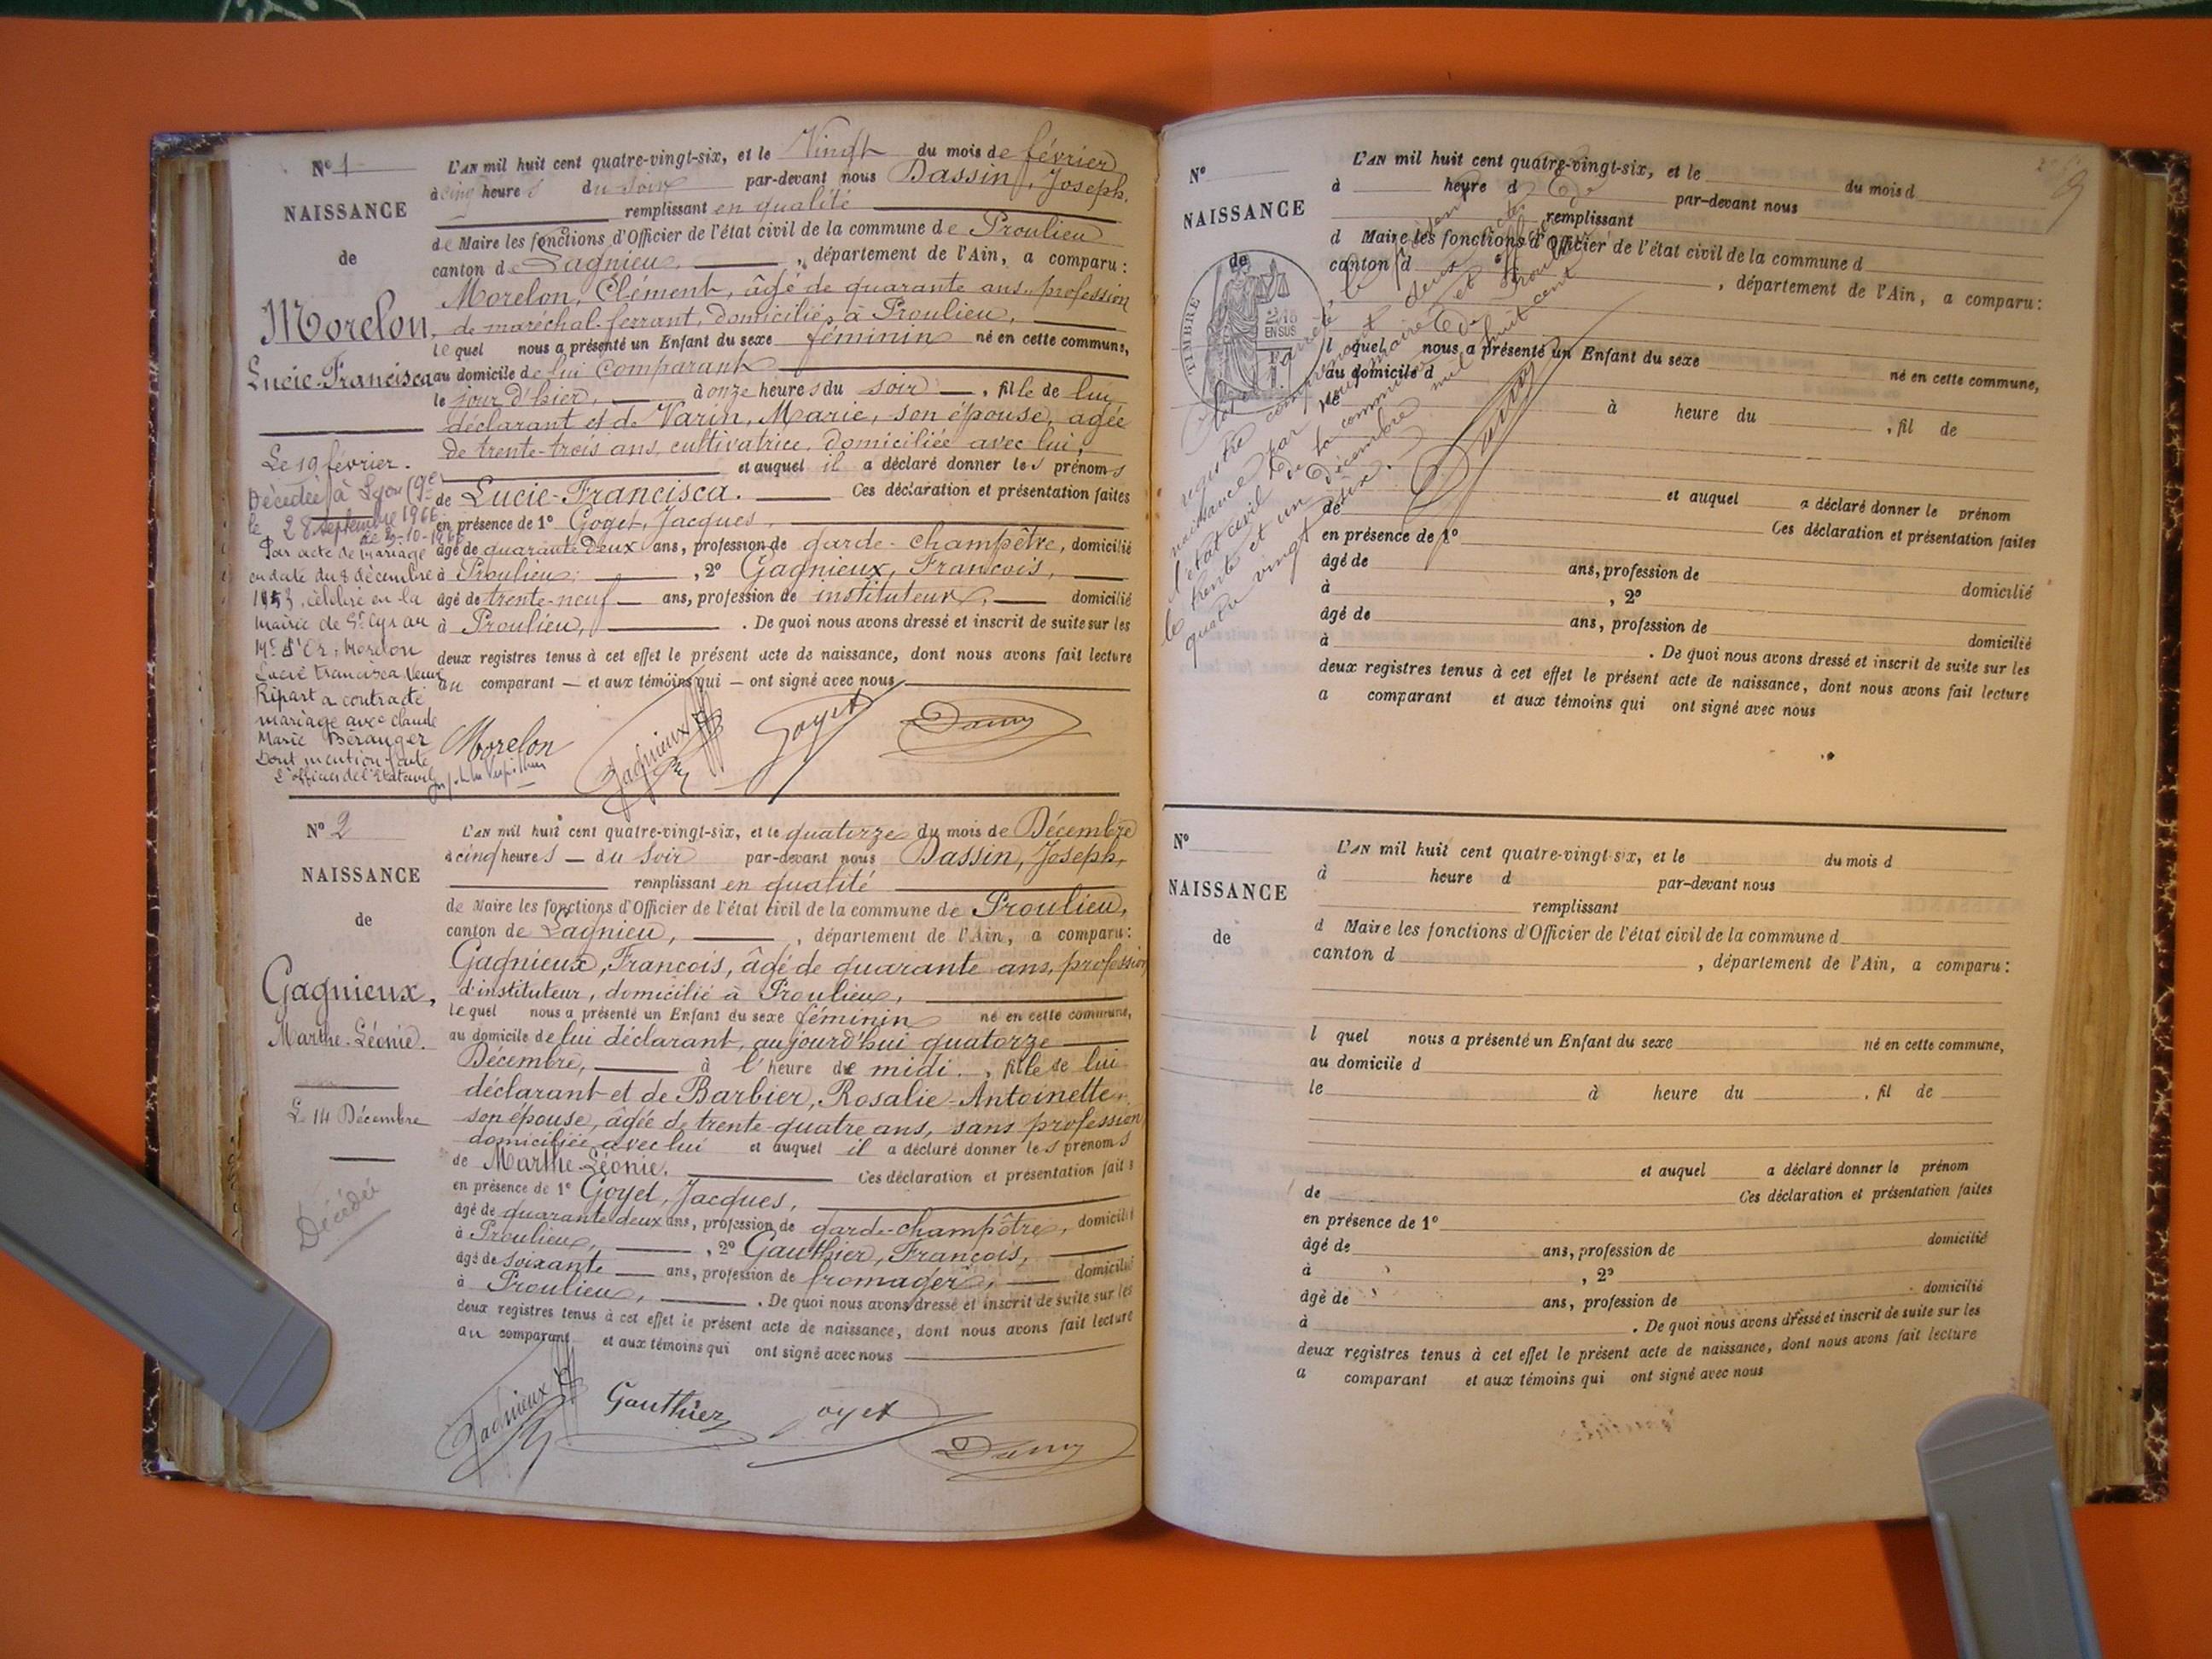 N° 1
NAISSANCE
de
Morelon
Lucie-Francisca
Le 19 février.
Décédée à Lyon (9e)
le 28 septembre 1966
Par acte de mariage
en date du 8 décembre
1953, célébré en la
mairie de St Cyr au
Mt d'Or, Morelon
Lucie Francisca Veuve
Ripart a contracté
mariage avec Claude
Marie Béranger
Dont mention faite
L'officier de l'Etat civil
L'AN mil huit cent quatre-vingt-six, et le Vingt du mois de février
à cinq heures du soir par-devant nous Dassin, Joseph,
remplissant en qualité
de Maire les fonctions d'Officier de l'état civil de la commune de Proulieu
canton de Lagnieu, département de l'Ain, a comparu:
Morelon, Clément, âgé de quarante ans, profession
de maréchal-ferrant, domicilié à Proulieu,
lequel nous a présenté un Enfant du sexe féminin né en cette commune,
au domicile de lui Comparant
le jour d'hier, à onze heures du soir, fille de lui
déclarant et de Varin, Marie, son épouse, agée
de trente-trois ans, cultivatrice, domiciliée avec lui,
et auquel il a déclaré donner les prénoms
de Lucie-Francisca. Ces déclaration et présentation faites
en présence de 1° Goyet, Jacques,
âgé de quarante deux ans, profession de garde-champêtre, domicilié
à Proulieu, 2° Gagnieux, François,
âgé de trente-neuf ans, profession de instituteur, domicilié
à Proulieu, . De quoi nous avons dressé et inscrit de suite sur les
deux registres tenus à cet effet le présent acte de naissance, dont nous avons fait lecture
au comparant — et aux témoins qui — ont signé avec nous
Morelon Gagnieux Goyet
N° 2
NAISSANCE
de
Gagnieux,
Marthe-Léonie.
Le 14 Décembre
Décédée
L'AN mil huit cent quatre-vingt-six, et le quatorze du mois de Décembre
à cinq heures — du soir par-devant nous Dassin, Joseph,
remplissant en qualité
de Maire les fonctions d'Officier de l'état civil de la commune de Proulieu,
canton de Lagnieu, département de l'Ain, a comparu:
Gagnieux, François, âgé de quarante ans, profession
d'instituteur, domicilié à Proulieu,
lequel nous a présenté un Enfant du sexe féminin né en cette commune,
au domicile de lui déclarant, aujourd'hui quatorze
Décembre, à l'heure de midi, fille de lui
déclarant et de Barbier, Rosalie-Antoinette,
son épouse, âgée de trente-quatre ans, sans profession
domiciliée avec lui et auquel il a déclaré donner les prénoms
de Marthe-Léonie. Ces déclaration et présentation faites
en présence de 1° Goyet, Jacques,
âgé de quarante deux ans, profession de garde-champêtre, domicilié
à Proulieu, 2° Gauthier, François,
âgé de soixante ans, profession de fromager, domicilié
à Proulieu, . De quoi nous avons dressé et inscrit de suite sur les
deux registres tenus à cet effet le présent acte de naissance, dont nous avons fait lecture
au comparant et aux témoins qui ont signé avec nous
Gagnieux Gauthier Goyet
9
N°
NAISSANCE
de
TIMBRE
2/10 EN SUS
L'AN mil huit cent quatre-vingt-six, et le du mois d
à heure d par-devant nous
remplissant
d Maire les fonctions d'Officier de l'état civil de la commune d
canton d , département de l'Ain, a comparu:
l quel nous a présenté un Enfant du sexe né en cette commune,
au domicile d
le à heure du , fil de
et auquel a déclaré donner le prénom
de Ces déclaration et présentation faites
en présence de 1°
âgé de ans, profession de domicilié
à , 2°
âgé de ans, profession de domicilié
à . De quoi nous avons dressé et inscrit de suite sur les
deux registres tenus à cet effet le présent acte de naissance, dont nous avons fait lecture
a comparant et aux témoins qui ont signé avec nous
arrêté
deux actes de
naissance par nous maire et officier de
l'état civil de la commune de Proulieu
le trente et un Décembre mil huit cent
quatre vingt six.
N°
NAISSANCE
de
L'AN mil huit cent quatre-vingt six, et le du mois d
à heure d par-devant nous
remplissant
d Maire les fonctions d'Officier de l'état civil de la commune d
canton d , département de l'Ain, a comparu:
l quel nous a présenté un Enfant du sexe né en cette commune,
au domicile d
le à heure du , fil de
et auquel a déclaré donner le prénom
de Ces déclaration et présentation faites
en présence de 1°
âgé de ans, profession de domicilié
à , 2°
âgé de ans, profession de domicilié
à . De quoi nous avons dressé et inscrit de suite sur les
deux registres tenus à cet effet le présent acte de naissance, dont nous avons fait lecture
a comparant et aux témoins qui ont signé avec nous